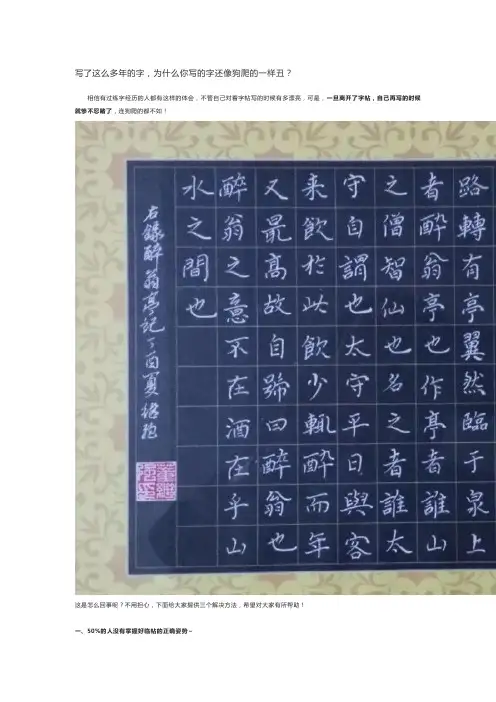 写了这么多年的字，为什么你写的字还像狗爬的一样丑？
相信有过练字经历的人都有这样的体会，不管自己对着字帖写的时候有多漂亮，可是，一旦离开了字帖，自己再写的时候
就惨不忍睹了，连狗爬的都不如！
路轉有亭翼然臨于泉上
者醉翁亭也作亭者誰山
之僧智仙也名之者誰太
守自謂也太守平日與客
来飲於此飲少輒醉而年
又最高故自號曰醉翁也
醉翁之意不在酒在乎山
水之間也
右錄醉翁亭記丁酉夏
这是怎么回事呢？不用担心，下面给大家提供三个解决方法，希望对大家有所帮助！
一、50%的人没有掌握好临帖的正确姿势~